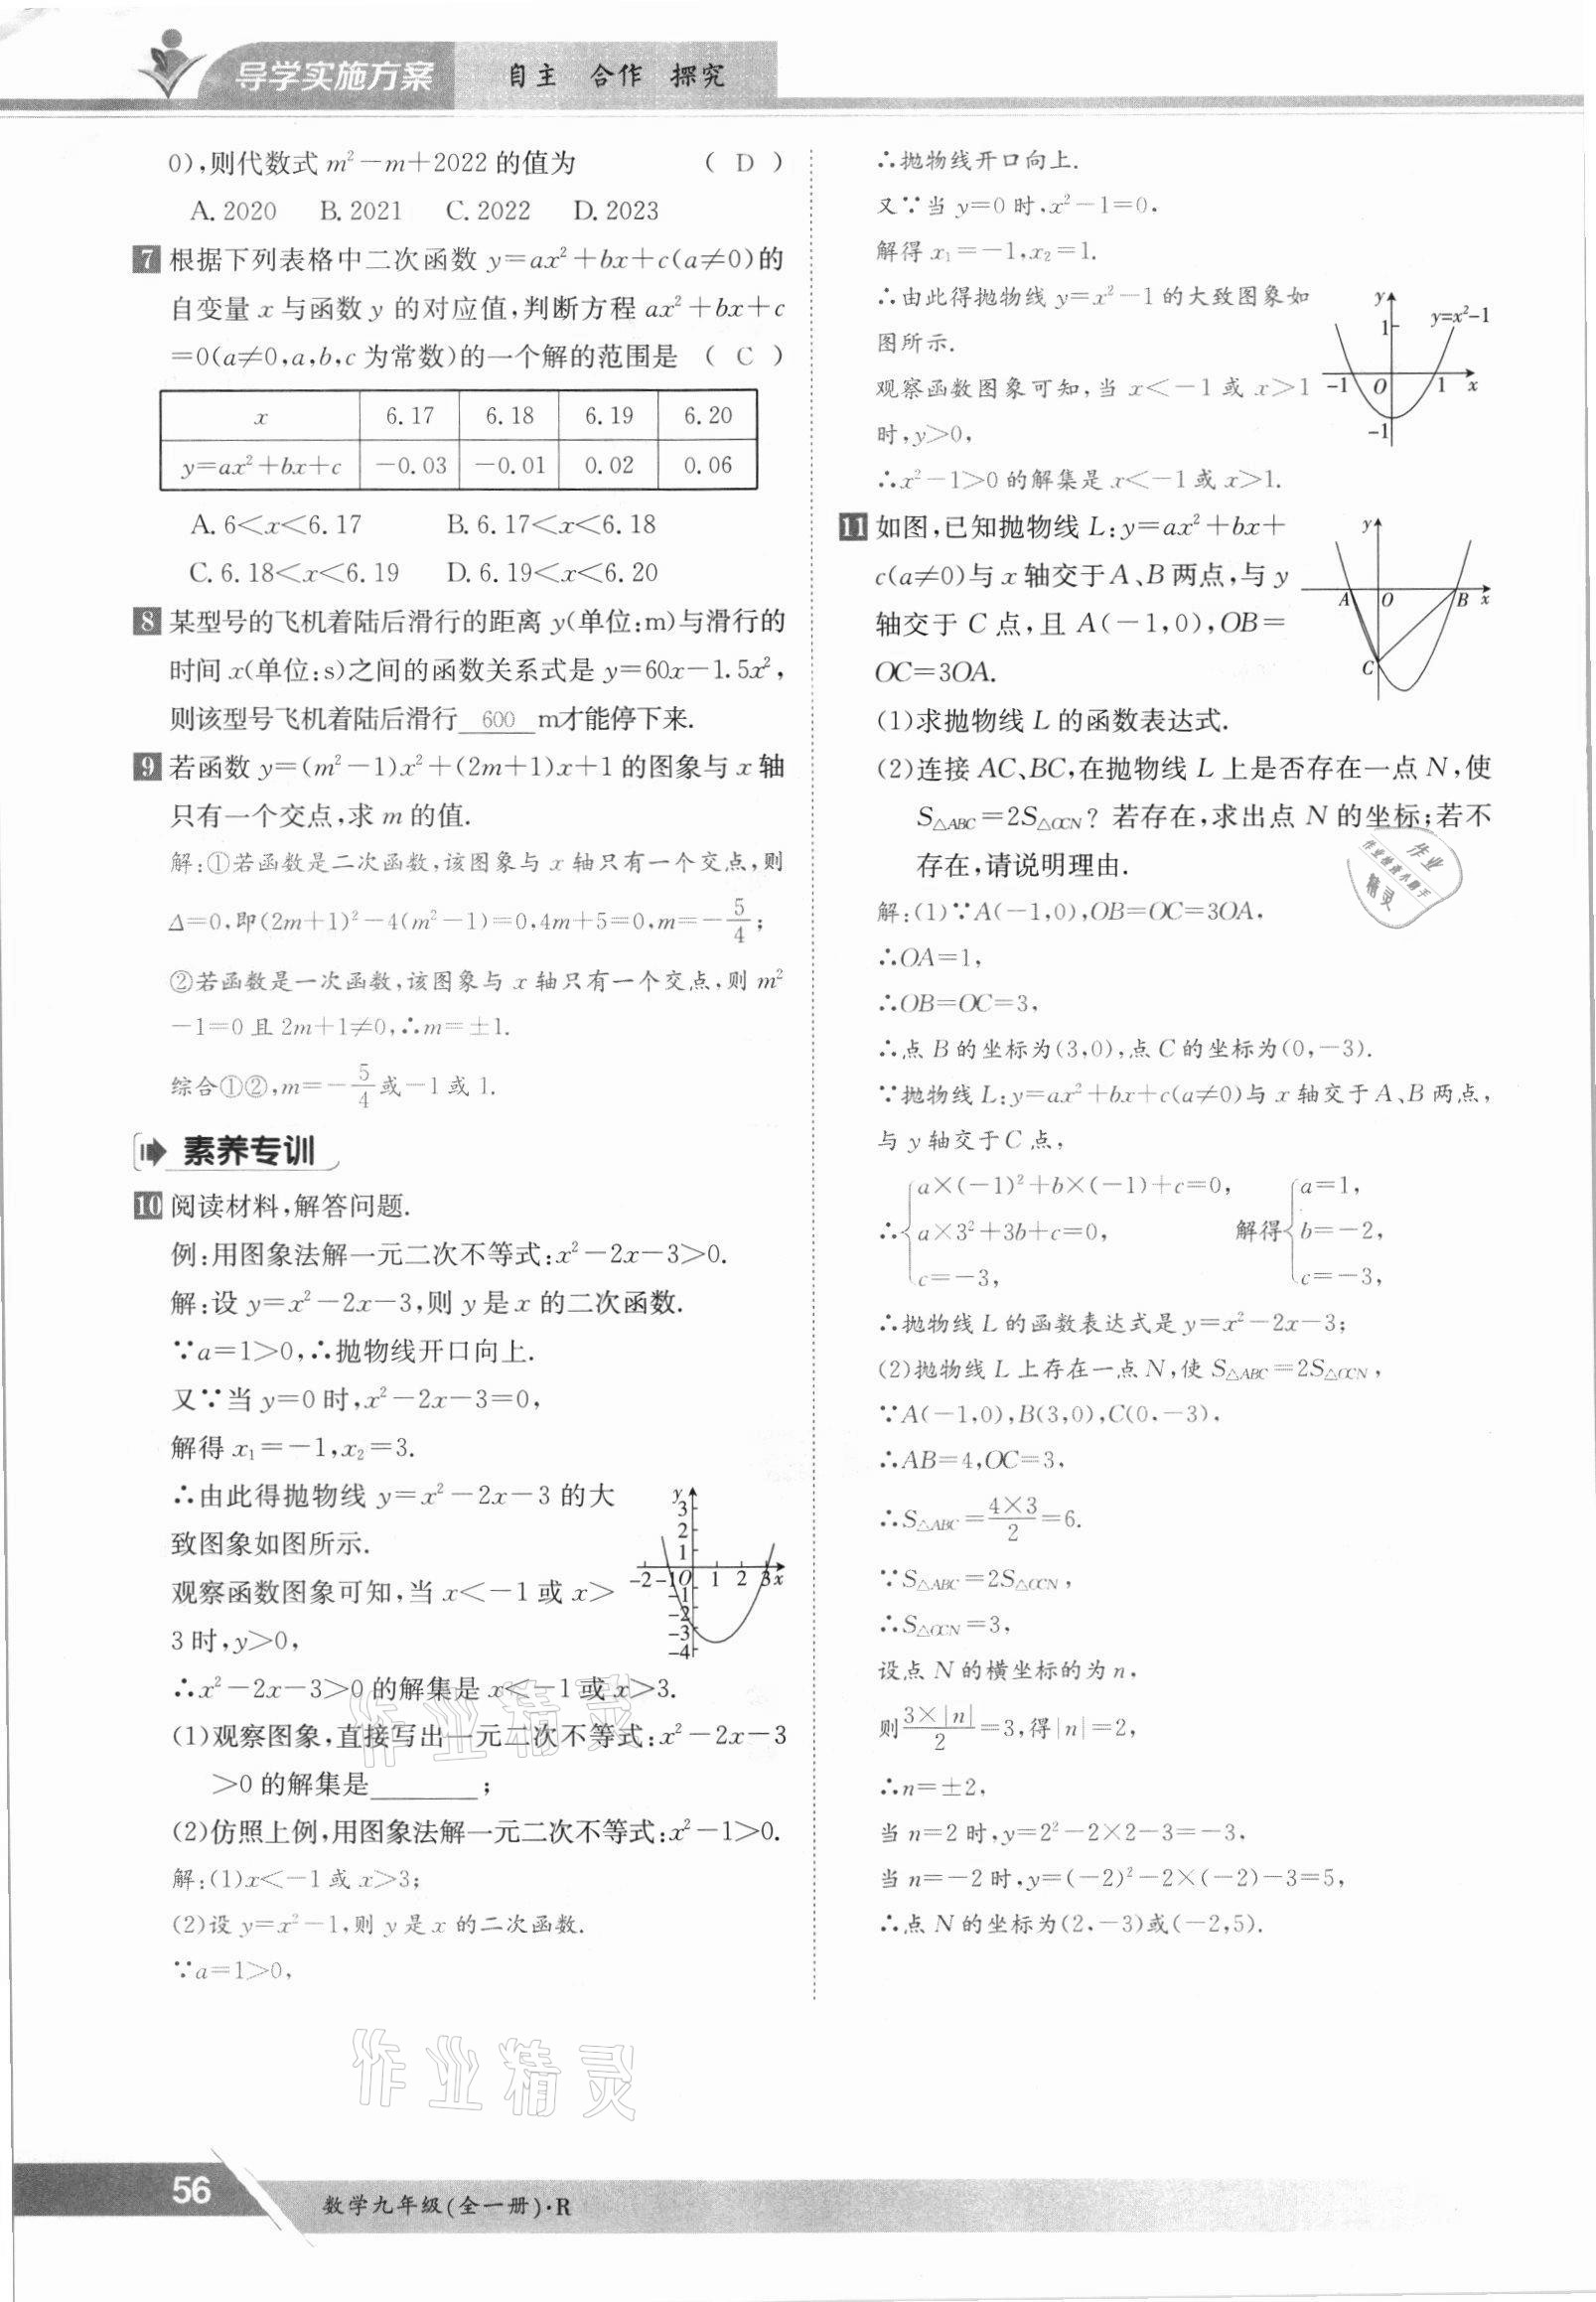 导学实施方案
自主 合作 探究
0),则代数式 m²－m＋2022 的值为 ( D )
A. 2020 B. 2021 C. 2022 D. 2023
7 根据下列表格中二次函数 y＝ax²＋bx＋c(a≠0)的
自变量 x 与函数 y 的对应值,判断方程 ax²＋bx＋c
＝0(a≠0,a,b,c 为常数)的一个解的范围是 ( C )
x 6.17 6.18 6.19 6.20
y＝ax²＋bx＋c －0.03 －0.01 0.02 0.06
A. 6＜x＜6.17 B. 6.17＜x＜6.18
C. 6.18＜x＜6.19 D. 6.19＜x＜6.20
8 某型号的飞机着陆后滑行的距离 y(单位:m)与滑行的
时间 x(单位:s)之间的函数关系式是 y＝60x－1.5x²,
则该型号飞机着陆后滑行 600 m才能停下来.
9 若函数 y＝(m²－1)x²＋(2m＋1)x＋1 的图象与 x 轴
只有一个交点,求 m 的值.
解:①若函数是二次函数,该图象与 x 轴只有一个交点,则
Δ＝0,即(2m＋1)²－4(m²－1)＝0,4m＋5＝0,m＝－5/4;
②若函数是一次函数,该图象与 x 轴只有一个交点,则 m²
－1＝0 且 2m＋1≠0,∴m＝±1.
综合①②,m＝－5/4 或－1 或 1.
素养专训
10 阅读材料,解答问题.
例:用图象法解一元二次不等式:x²－2x－3＞0.
解:设 y＝x²－2x－3,则 y 是 x 的二次函数.
∵a＝1＞0,∴抛物线开口向上.
又∵当 y＝0 时,x²－2x－3＝0,
解得 x₁＝－1,x₂＝3.
∴由此得抛物线 y＝x²－2x－3 的大
致图象如图所示.
观察函数图象可知,当 x＜－1 或 x＞
3 时,y＞0,
y
3
2
1
-2 -1 O 1 2 3 x
-1
-2
-3
-4
∴x²－2x－3＞0 的解集是 x＜－1 或 x＞3.
(1)观察图象,直接写出一元二次不等式:x²－2x－3
＞0 的解集是________;
(2)仿照上例,用图象法解一元二次不等式:x²－1＞0.
解:(1)x＜－1 或 x＞3;
(2)设 y＝x²－1,则 y 是 x 的二次函数.
∵a＝1＞0,
∴抛物线开口向上.
又∵当 y＝0 时,x²－1＝0,
解得 x₁＝－1,x₂＝1.
∴由此得抛物线 y＝x²－1 的大致图象如
图所示.
观察函数图象可知,当 x＜－1 或 x＞1
时,y＞0,
∴x²－1＞0 的解集是 x＜－1 或 x＞1.
y
1
y=x²-1
-1 O 1 x
-1
11 如图,已知抛物线 L:y＝ax²＋bx＋
c(a≠0)与 x 轴交于A、B 两点,与 y
轴交于 C 点,且 A(－1,0),OB＝
OC＝3OA.
y
A O B x
C
(1)求抛物线 L 的函数表达式.
(2)连接 AC、BC,在抛物线 L 上是否存在一点 N,使
S△ABC＝2S△OCN? 若存在,求出点 N 的坐标;若不
存在,请说明理由.
解:(1)∵A(－1,0),OB＝OC＝3OA,
∴OA＝1,
∴OB＝OC＝3,
∴点 B 的坐标为(3,0),点 C 的坐标为(0,－3).
∵抛物线 L:y＝ax²＋bx＋c(a≠0)与 x 轴交于 A、B 两点,
与 y 轴交于 C 点,
a×(－1)²＋b×(－1)＋c＝0, a＝1,
∴ a×3²＋3b＋c＝0, 解得 b＝－2,
c＝－3, c＝－3,
∴抛物线 L 的函数表达式是 y＝x²－2x－3;
(2)抛物线 L 上存在一点 N,使 S△ABC＝2S△OCN,
∵A(－1,0),B(3,0),C(0,－3),
∴AB＝4,OC＝3,
∴S△ABC＝4×3/2＝6.
∵S△ABC＝2S△OCN,
∴S△OCN＝3,
设点 N 的横坐标的为 n,
则 3×|n|/2＝3,得|n|＝2,
∴n＝±2,
当 n＝2 时,y＝2²－2×2－3＝－3,
当 n＝－2 时,y＝(－2)²－2×(－2)－3＝5,
∴点 N 的坐标为(2,－3)或(－2,5).
作业
作业检查小助手
精灵
作业精灵
作业精灵
56
数学九年级(全一册)·R